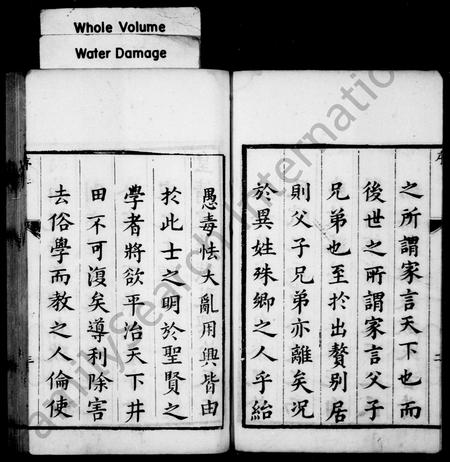 Whole Volume
Water Damage
之所謂家言天下也而
後世之所謂家言父子
兄弟也至於出贅别居
則父子兄弟亦離矣况
於異姓殊鄉之人乎紿
二
愚毒怯大亂用興皆由
於此士之明於聖賢之
學者將欲平治天下井
田不可復矣導利除害
去俗學而教之人倫使
三
FamilySearch International